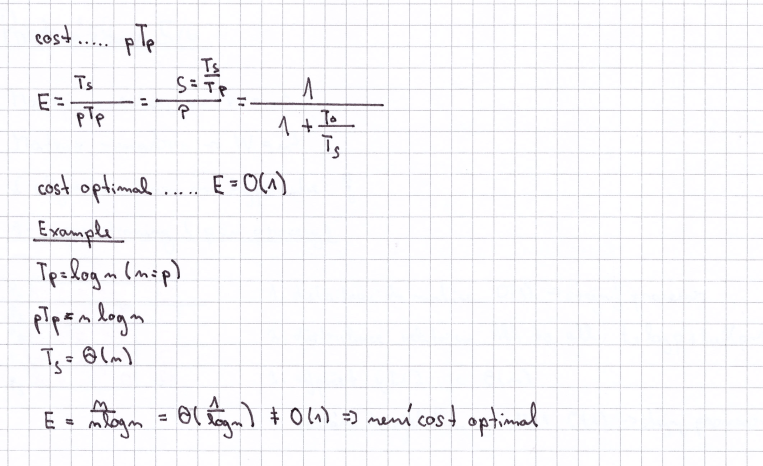 cost ..... pTp
E = Ts / pTp = S = Ts/Tp / P = 1 / 1 + To/Ts
cost optimal ..... E = O(1)
Example
Tp = log n (n = p)
pTp = n log n
Ts = Θ(n)
E = n / n log n = Θ(1 / log n) ≠ O(1) => není cost optimal